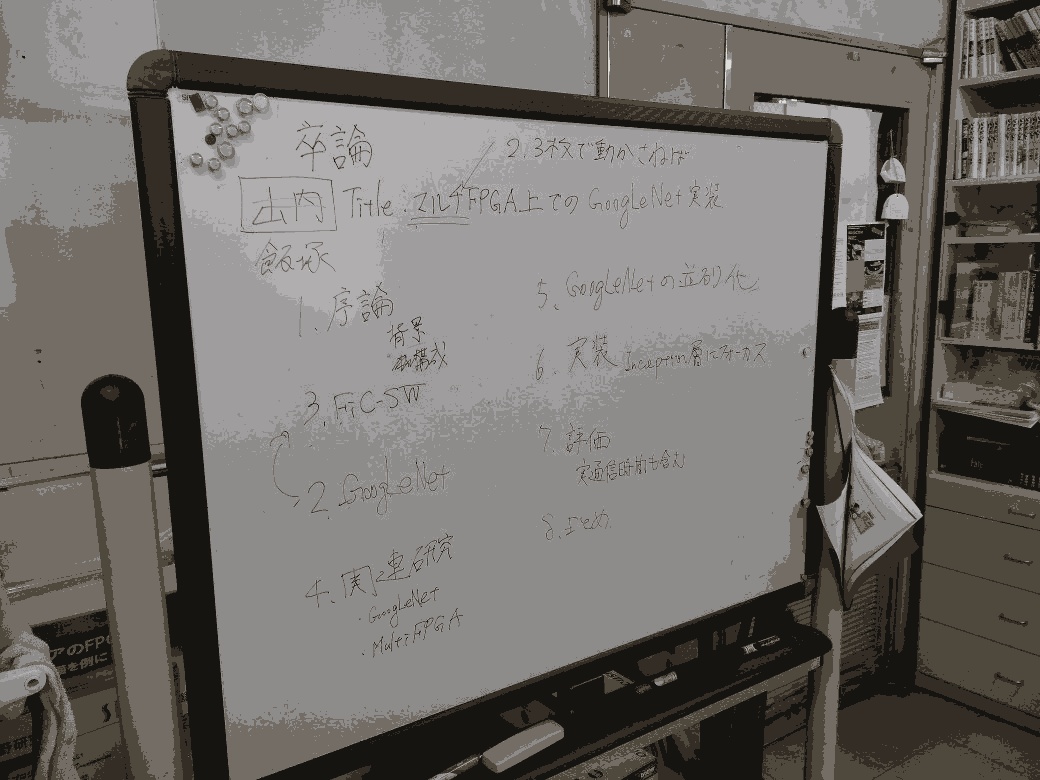 卒論
2,3枚で動かさねば
山内 Title : マルチFPGA上での GoogLeNet 実装
飯塚
1. 序論
背景
構成
3. FiC-SW
2. GoogLeNet
4. 関連研究
・GoogLeNet
・Multi FPGA
5. GoogLeNetの並列化
6. 実装 Inception層にフォーカス
7. 評価
実通信時間も含む
8. まとめ
アのFPG
を例に